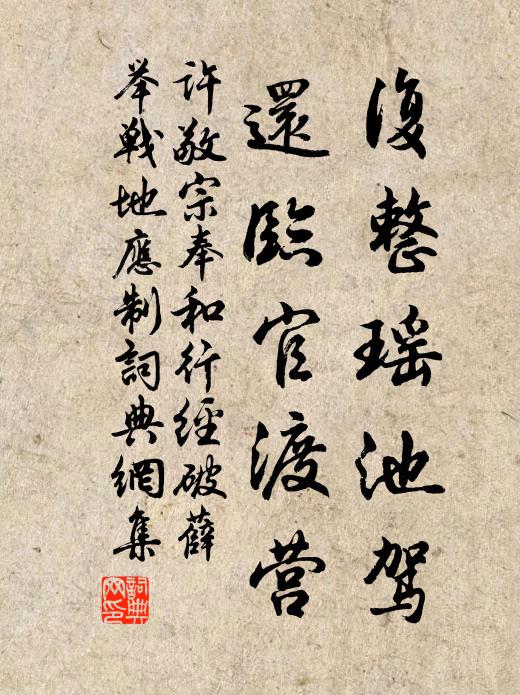 復整瑶池駕
還臨官渡营
許敬宗奉和行經破薛
举戰地應制詞典網集
詞典
网印